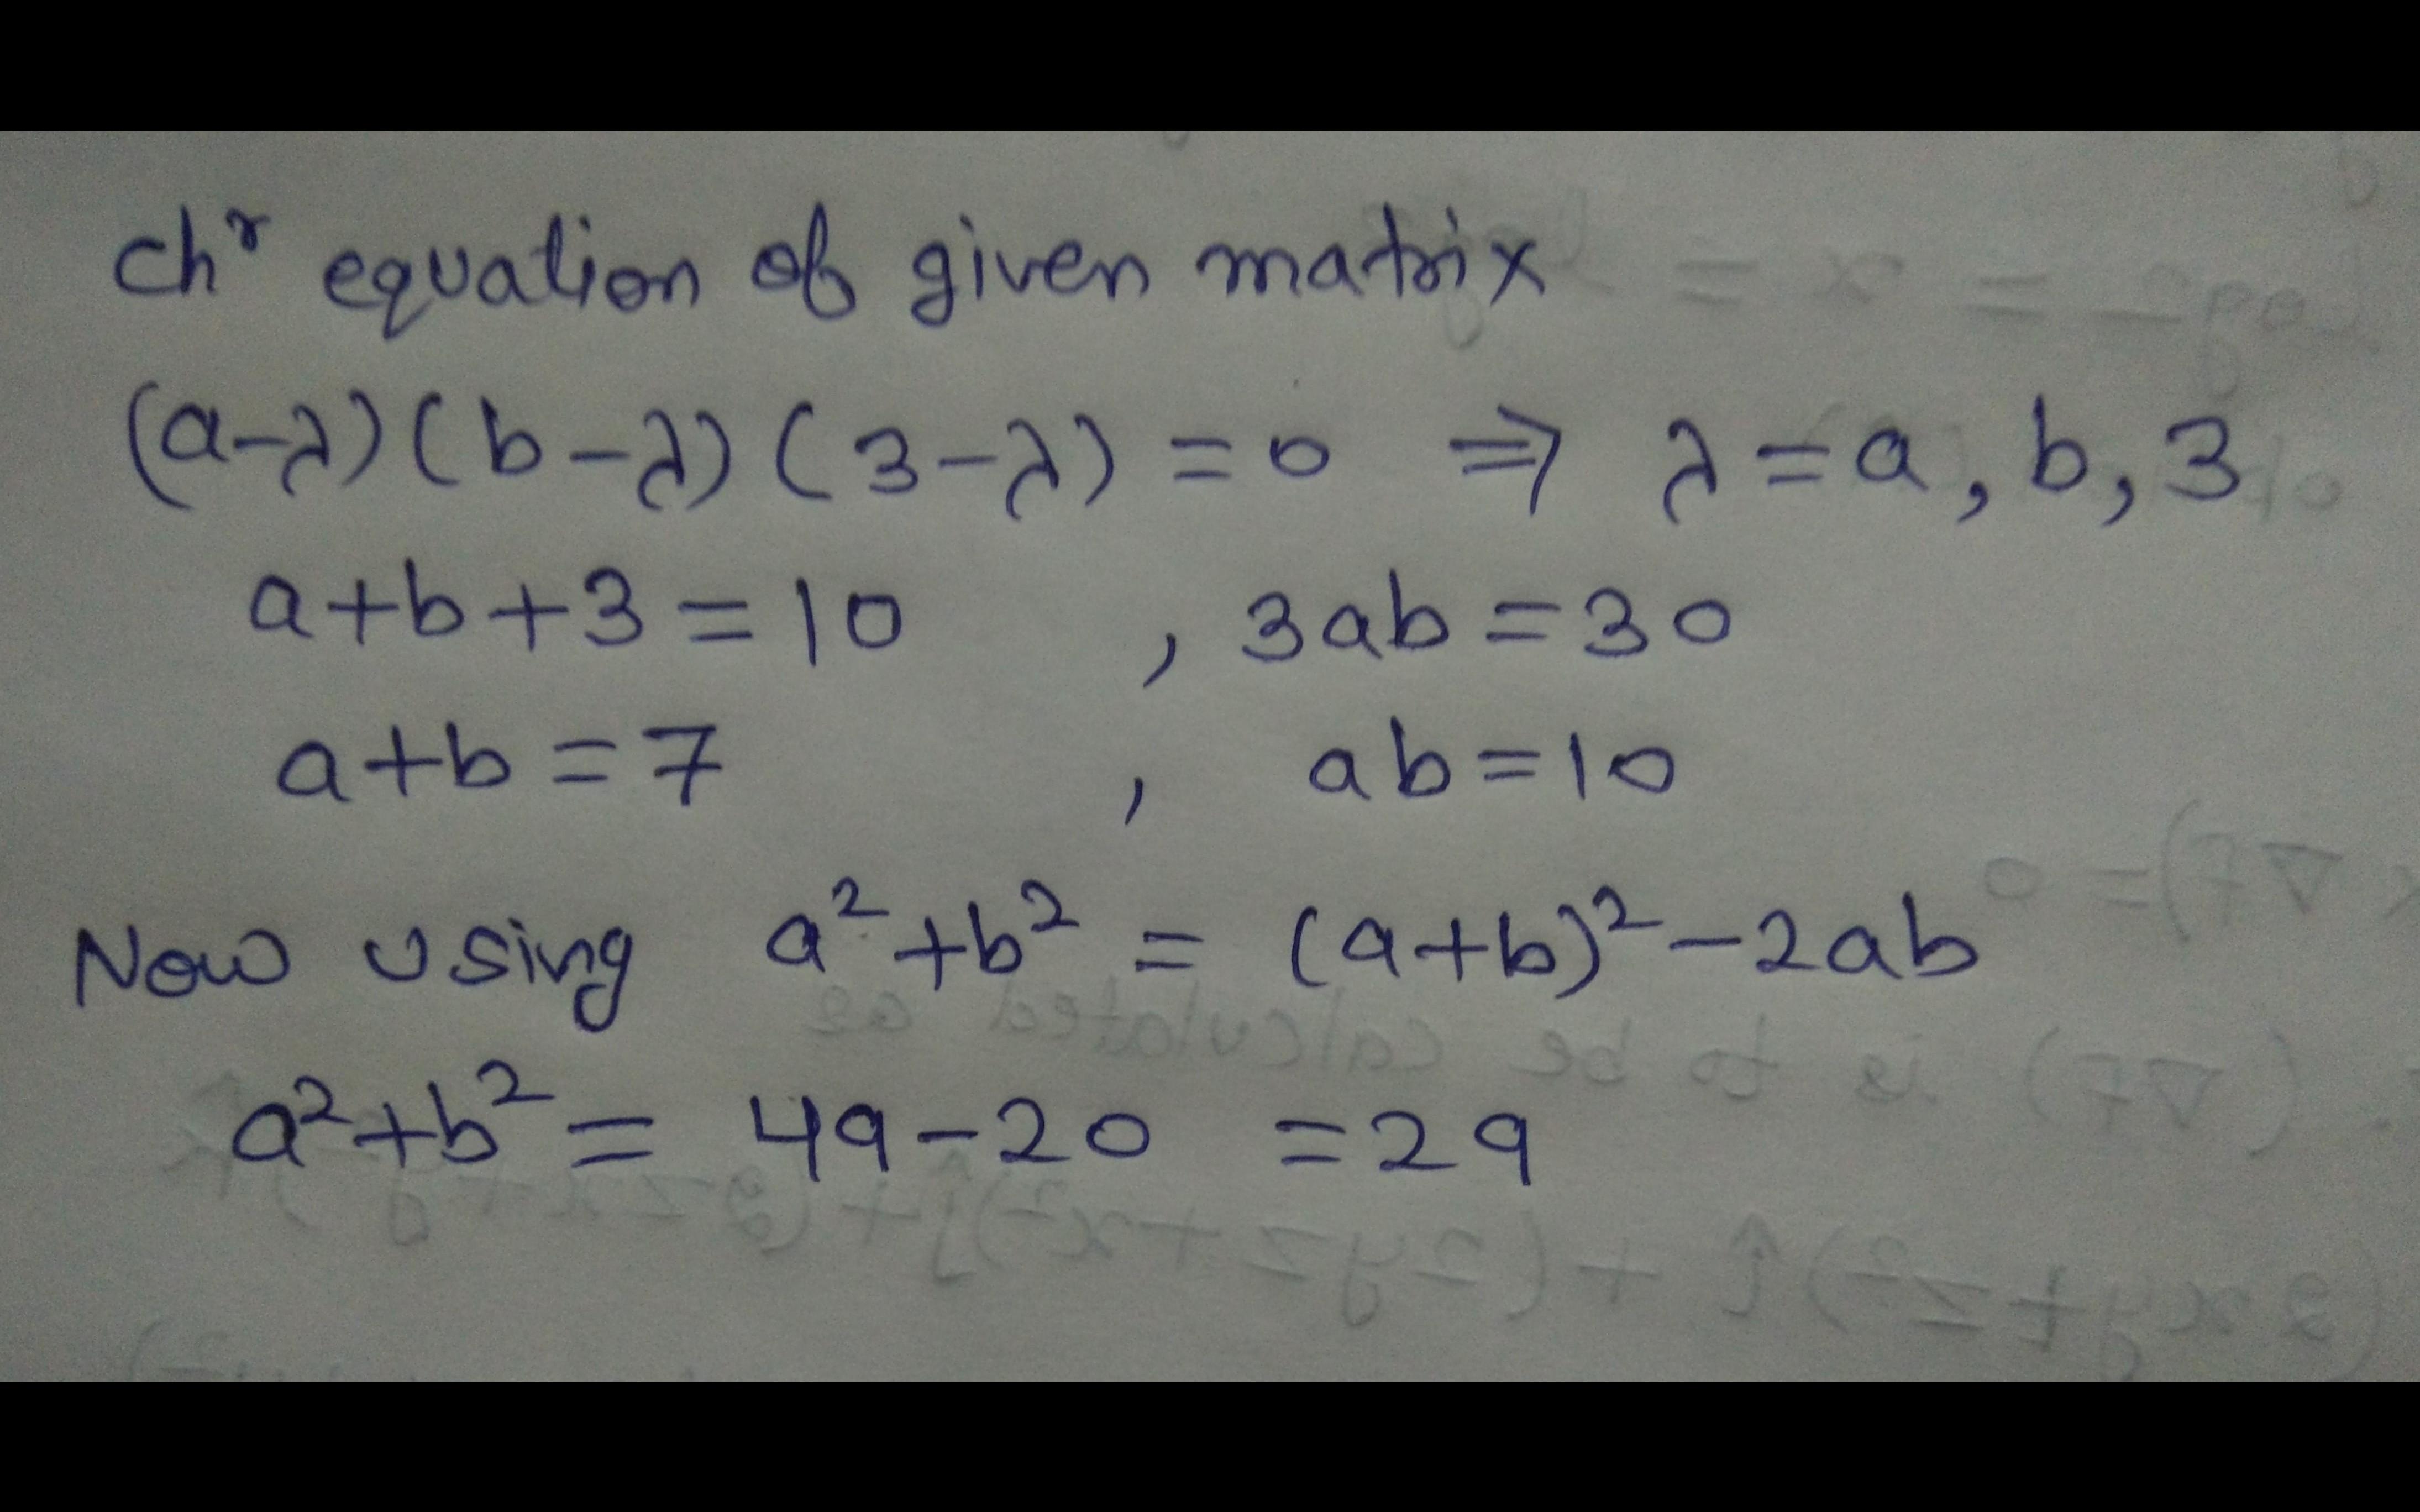 chʳ equation of given matrix
(a-λ)(b-λ)(3-λ)=0 ⇒ λ=a,b,3
a+b+3=10 , 3ab=30
a+b=7 , ab=10
Now using a²+b² = (a+b)²-2ab
a²+b²= 49-20 =29